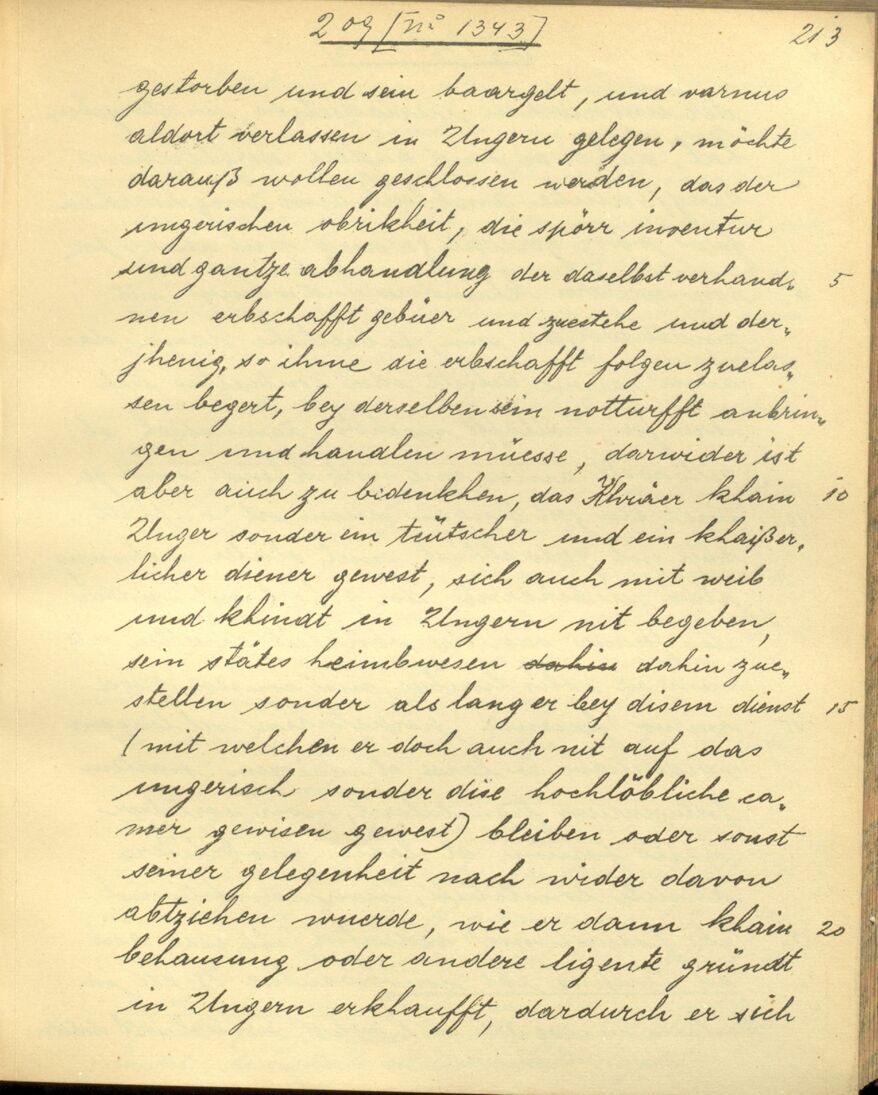 209 [No 1343]
213
gestorben und sein baargelt, und varnus
aldort verlassen in Ungern gelegen, möchte
darauß wollen geschlossen werden, das der
ungerischen obrikheit, die spörr inventur
und gantze abhandlung der daselbst verhand„ 5
nen erbschafft gebüer und zuestehe und der„
jhenig, so ihme die erbschafft folgen zuelas„
sen begert, bey derselben sein notturfft anbrin„
gen und handlen müesse, darwider ist
aber auch zu bedenkhen, das Khräer khain 10
Unger sonder ein teütscher und ein khaißer„
licher diener gewest, sich auch mit weib
und khindt in Ungern nit begeben,
sein stätes heimbwesen dahin dahin zue„
stellen sonder als lang er bey disem dienst 15
(mit welchen er doch auch nit auf das
ungerisch sonder dise hochlöbliche ca„
mer gewisen gewest) bleiben oder sonst
seiner gelegenheit nach wider davon
abtziehen wuerde, wie er dann khain 20
behausung oder andere ligente gründt
in Ungern erkhaufft, dardurch er sich